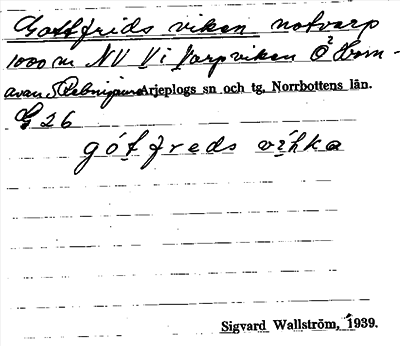 Gottfrids viken notvarp
1000 m NV V i Jarpviken Ö Horn-
avan Arjeplogs sn och tg, Norrbottens län.
G 26
gótfreds víhka
Sigvard Wallström, 1939.